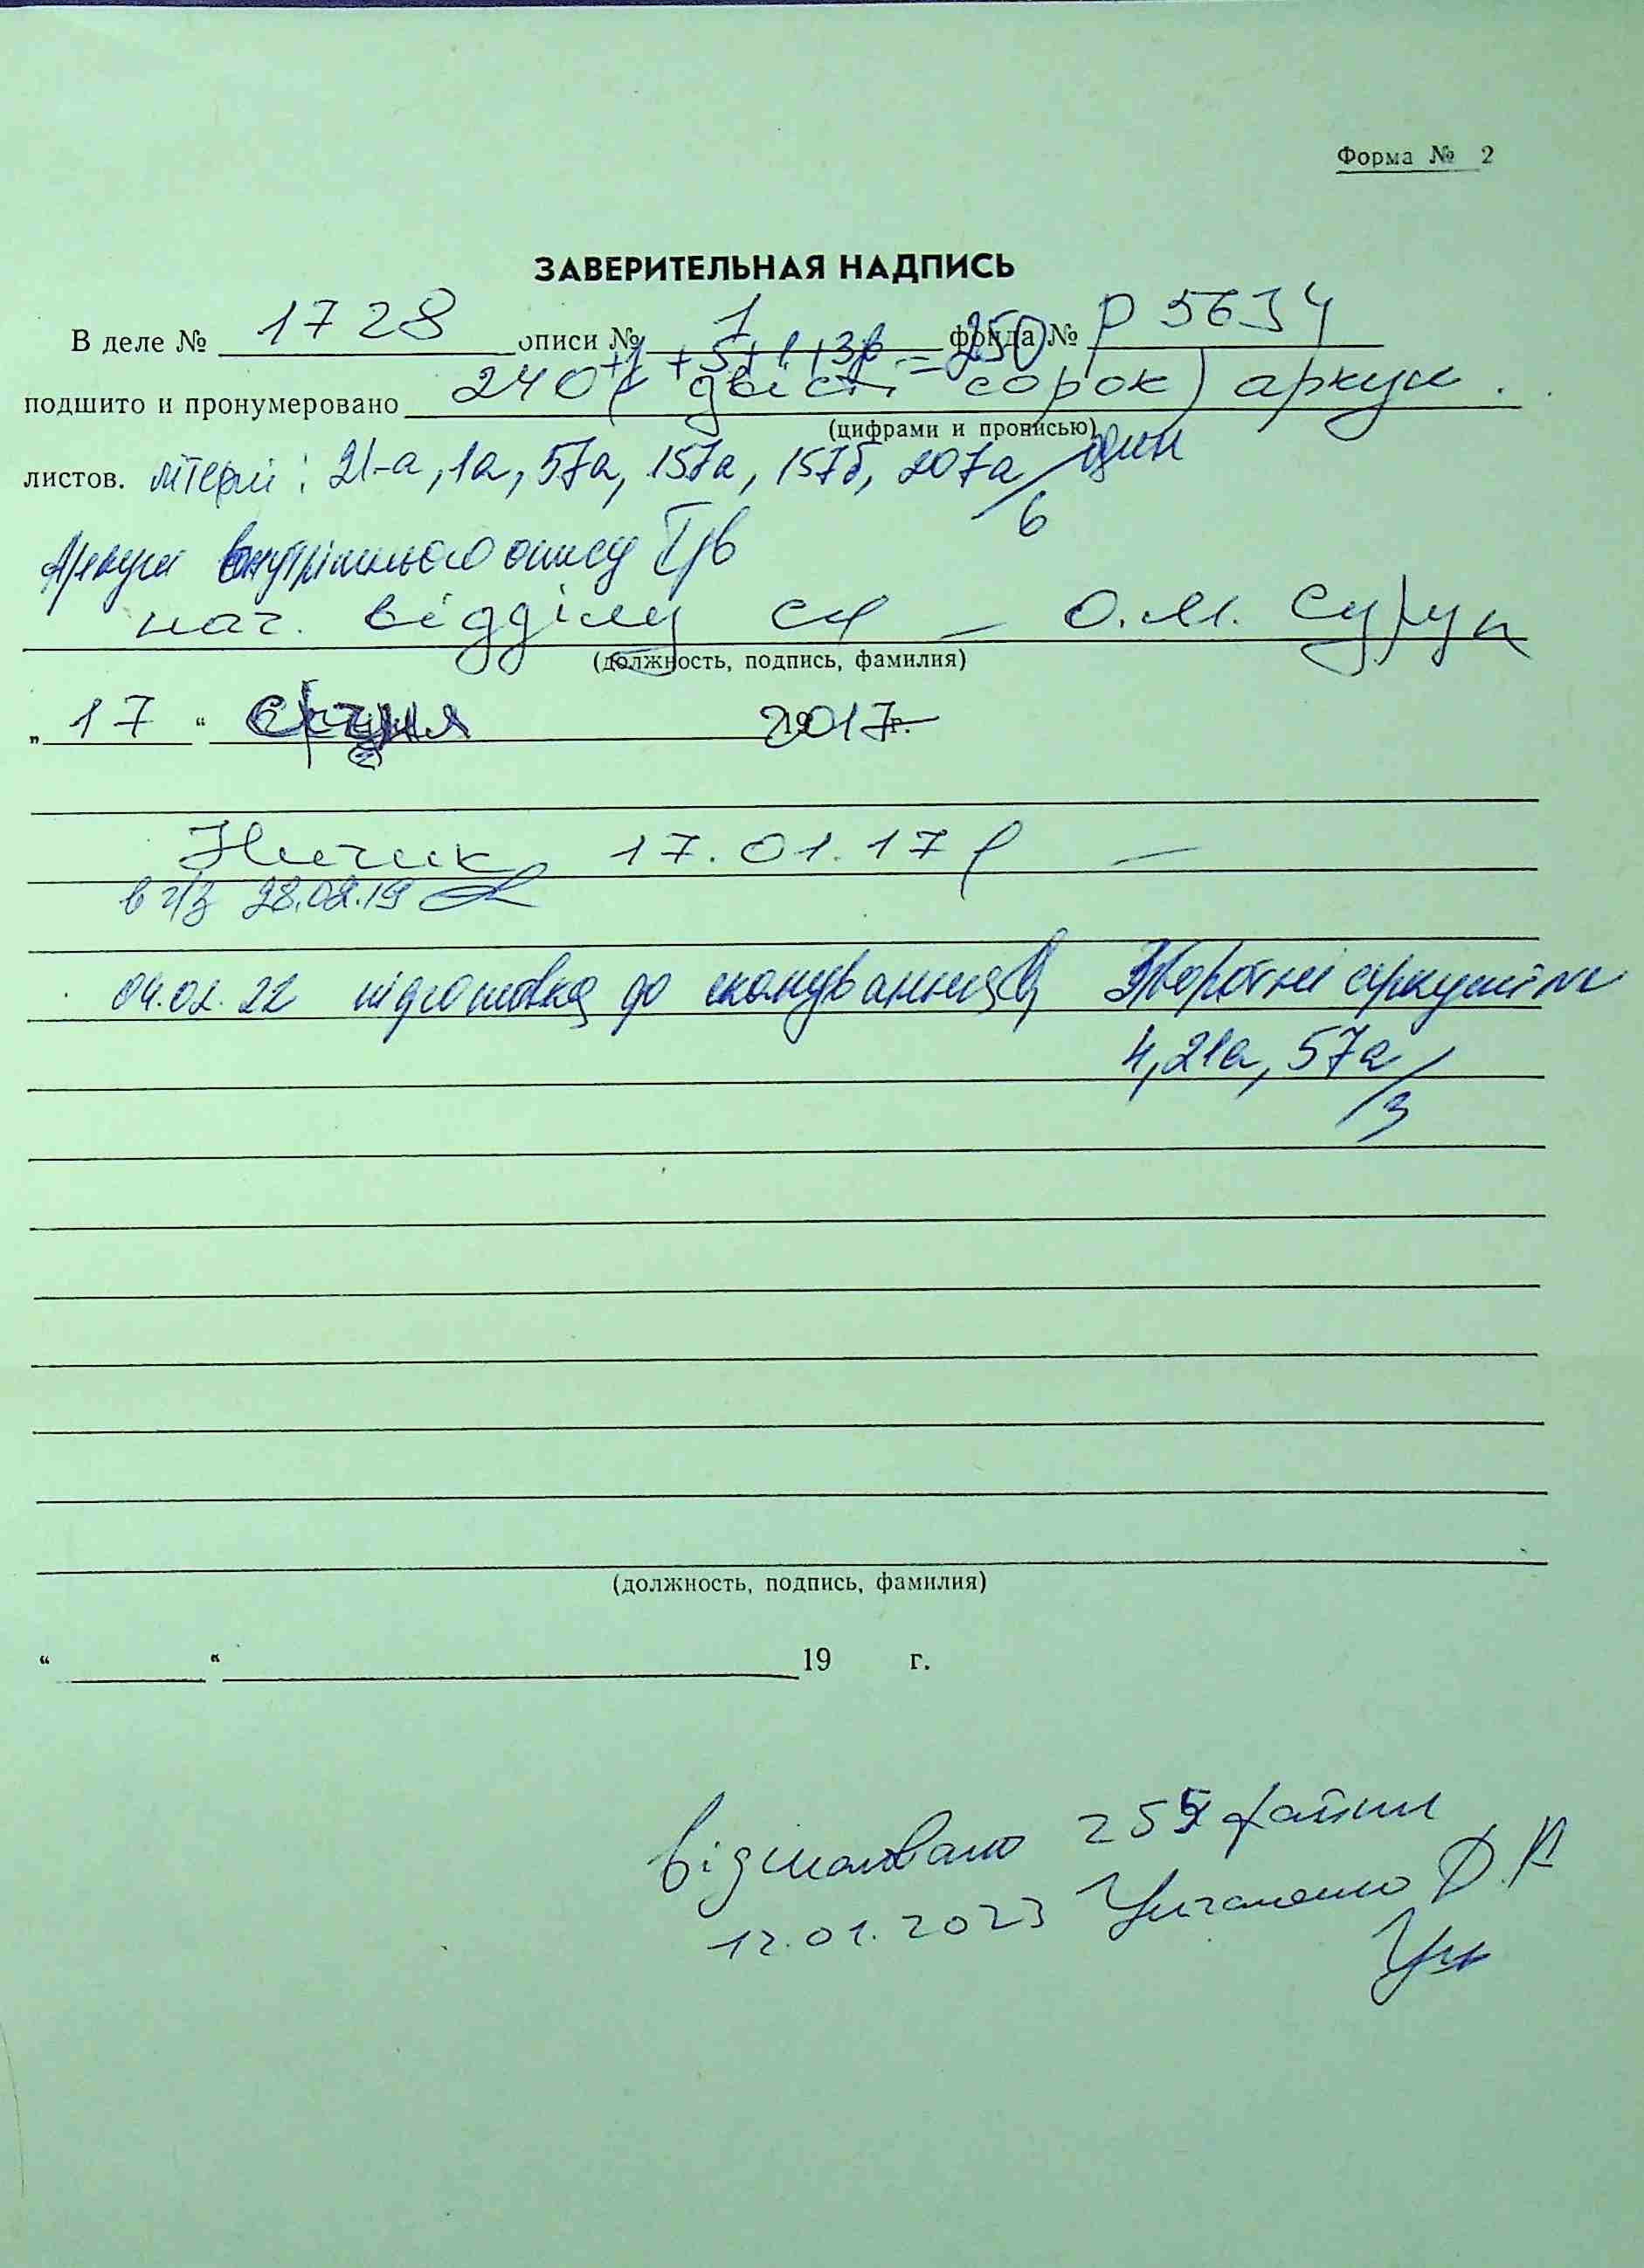 Форма № 2
ЗАВЕРИТЕЛЬНАЯ НАДПИСЬ
В деле № 1728 описи № 1 фонда № Р 5634
+1 +5+1+3 = 250
подшито и пронумеровано 240 (двісті сорок) аркуш
(цифрами и прописью)
один
листов. літерні: 21-а, 1а, 57а, 157а, 157б, 207а / 6
Аркуш внутрішнього опису
нач. відділу О.М.
(должность, подпись, фамилия)
„ 17 “ січня 2017 г.
17.01.17
28.02.19
04.02.22 підготовка до сканування Зворотні аркуші
4, 21а, 57а / 3
(должность, подпись, фамилия)
“ “ 19 г.
відскановано 255 файли
12.01.2023 Д.